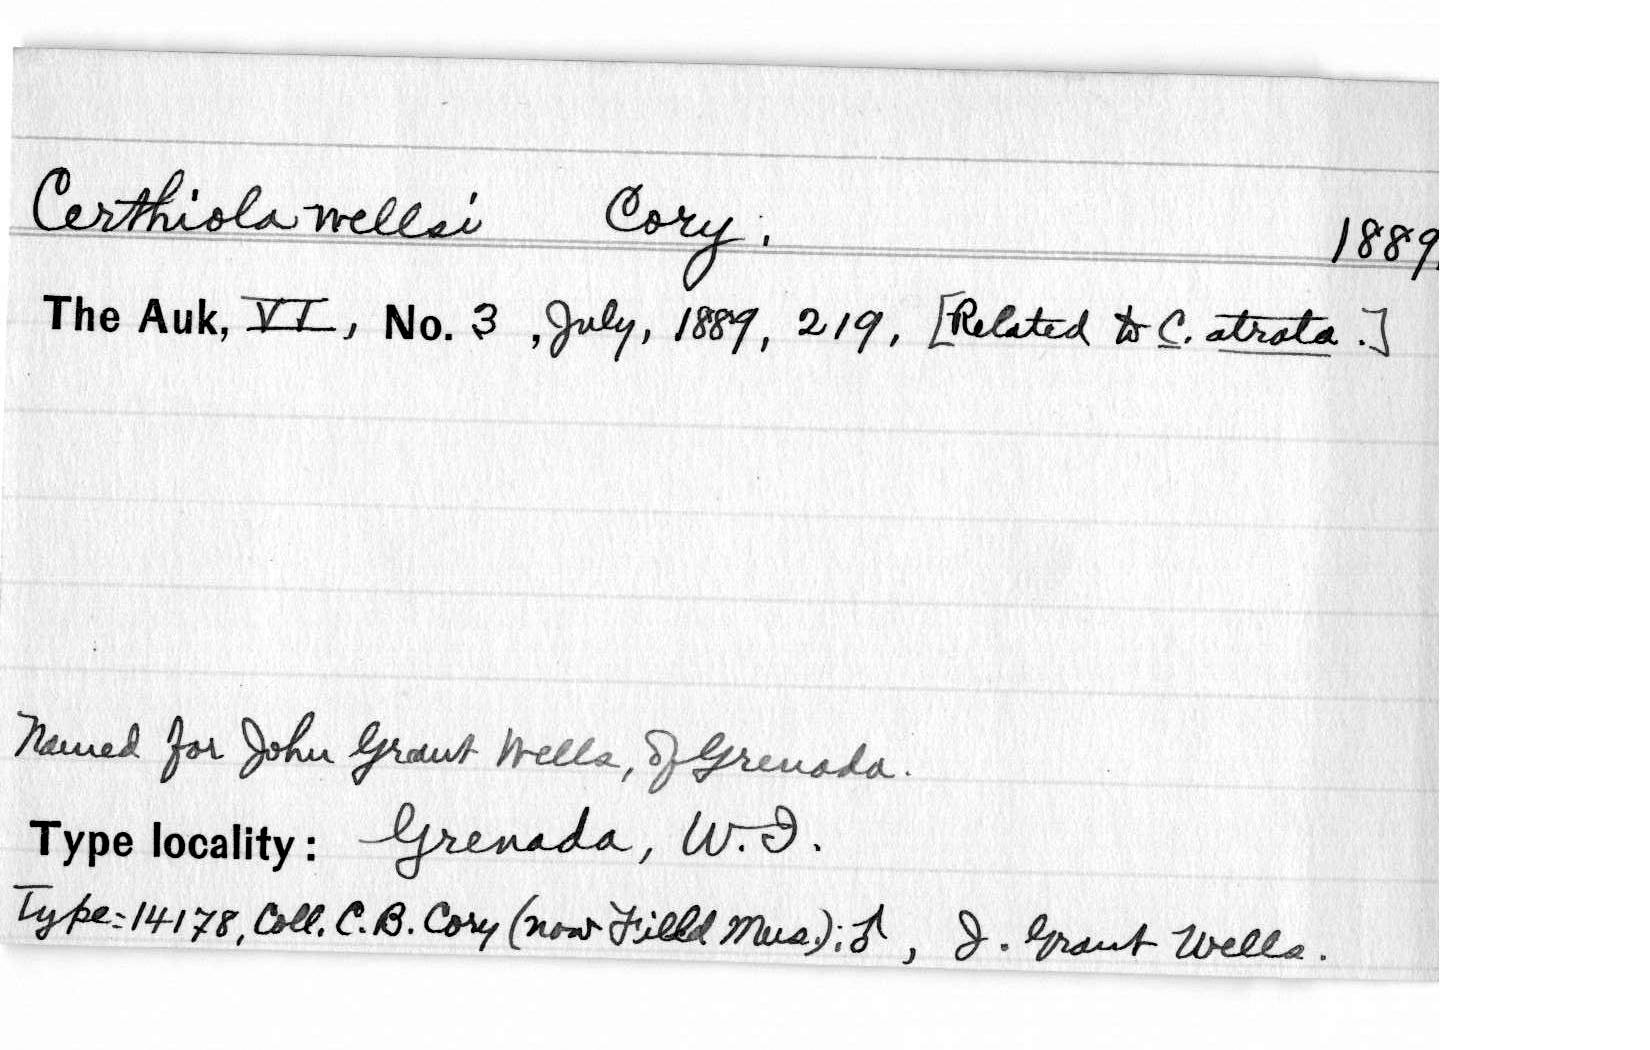 Certhiola wellsi Cory. 1889.
The Auk, VI, No. 3, July, 1889, 219, [Related to C. atrata.]
Named for John Grant Wells, of Grenada.
Type locality: Grenada, W.I.
Type=14178, Coll. C.B. Cory (now Field Mus.); ♂, J. Grant Wells.